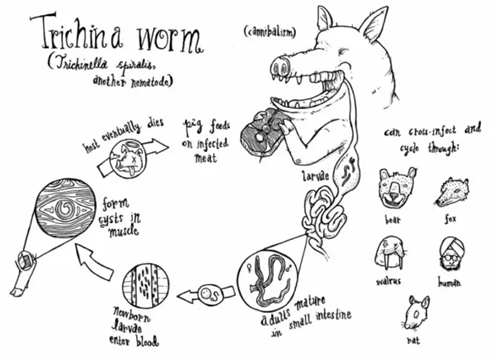 Trichina worm
(Trichinella spiralis,
another nematode)
(cannibalism)
host eventually dies
pig feeds
on infected
meat
can cross-infect and
cycle through:
larvae
bear
fox
form
cysts in
muscle
walrus
human
newborn
larvae
enter blood
adults mature
in small intestine
rat